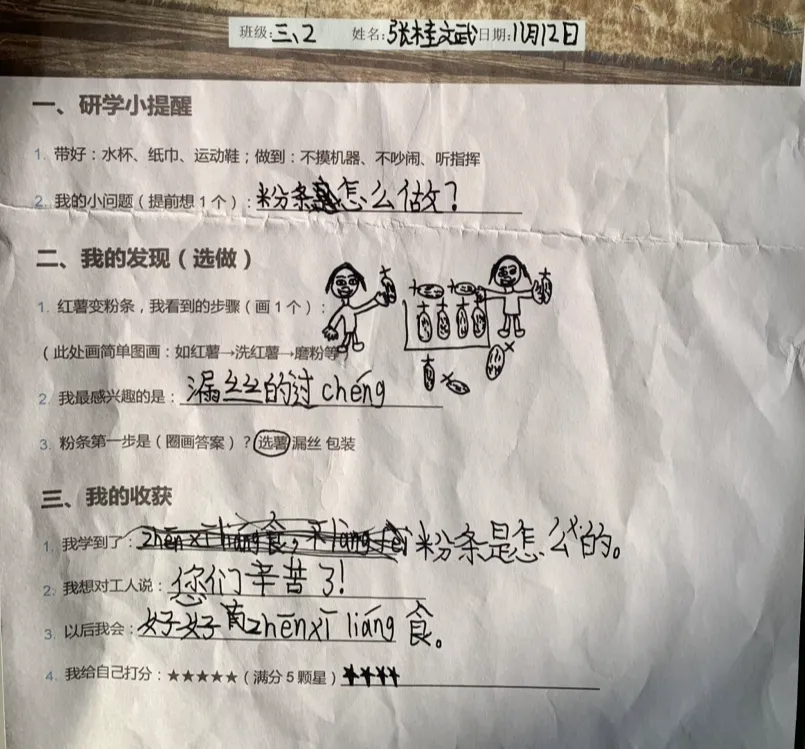 班级:三、2 姓名:张桂文武 日期:11月12日
一、研学小提醒
1. 带好：水杯、纸巾、运动鞋；做到：不摸机器、不吵闹、听指挥
2. 我的小问题（提前想1个）：粉条怎么做？
二、我的发现（选做）
1. 红薯变粉条，我看到的步骤（画1个）：
（此处画简单图画：如红薯→洗红薯→磨粉等
2. 我最感兴趣的是：漏丝丝的过chéng
3. 粉条第一步是（圈画答案）？选薯 漏丝 包装
三、我的收获
1. 我学到了：zhēn xī liáng食，不làng fèi 粉条是怎么的。
2. 我想对工人说：您们辛苦了!
3. 以后我会：好好zhēnxī liáng食。
4. 我给自己打分：★★★★★（满分5颗星）★★★★